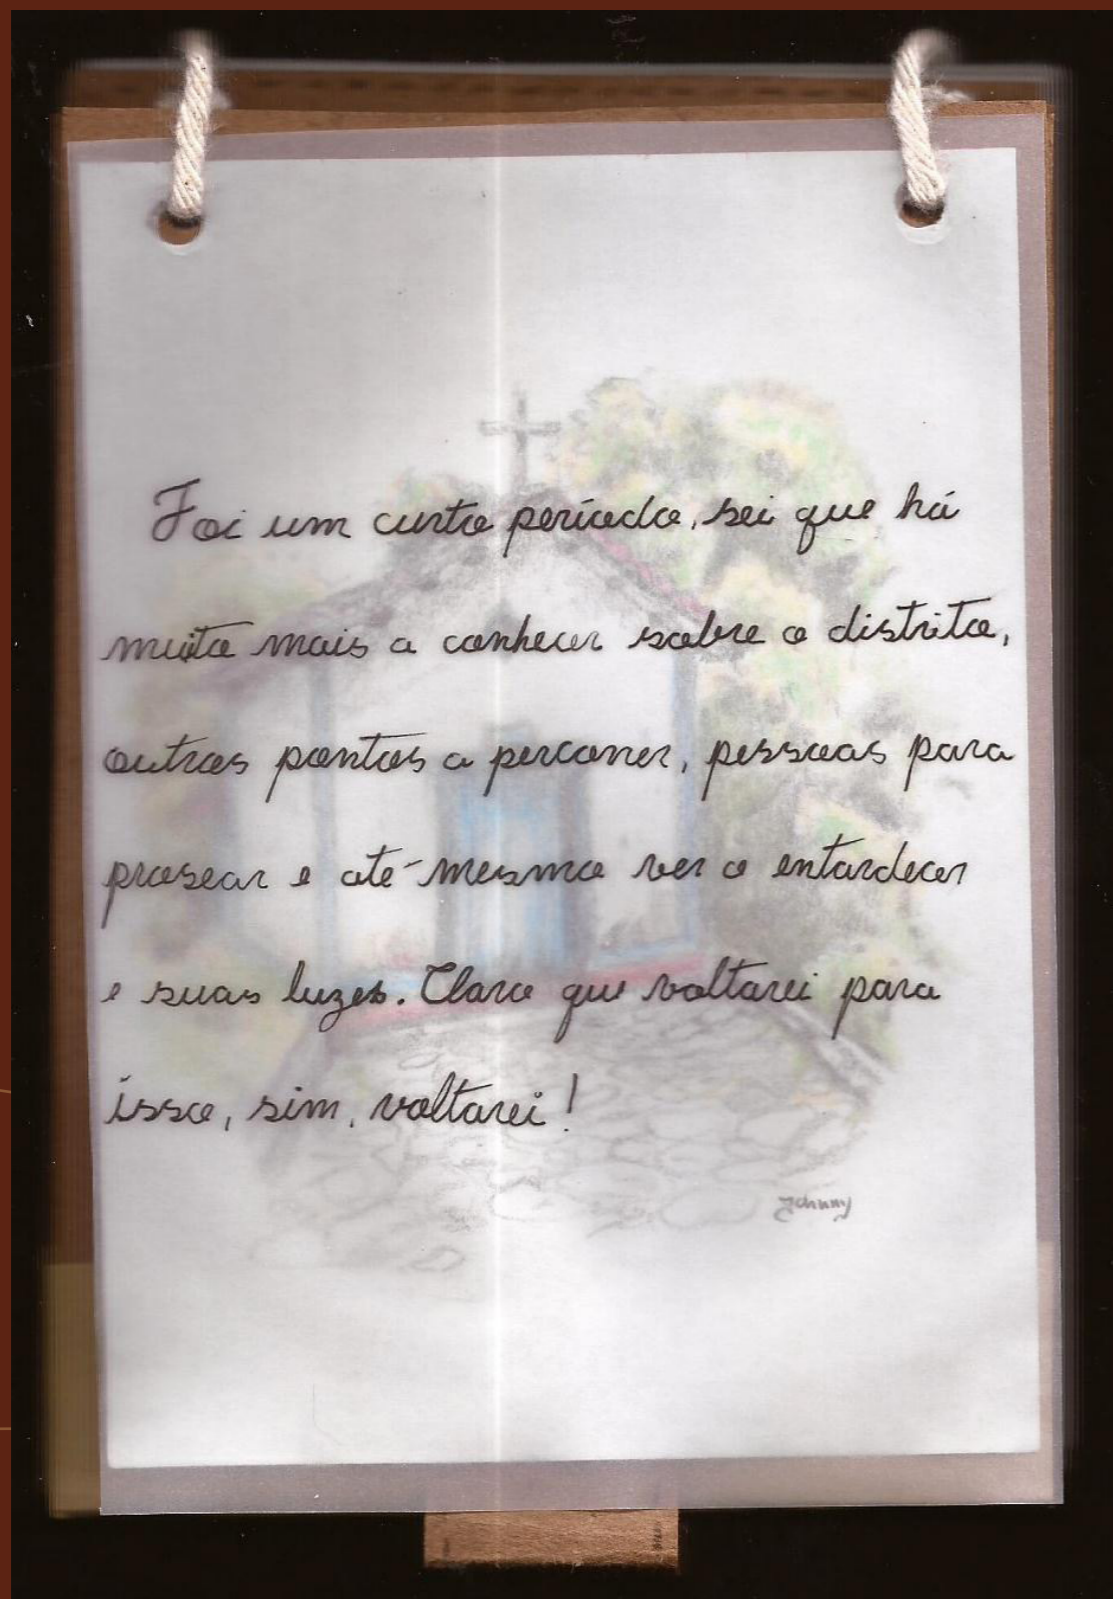 Foi um curto período, sei que há
muito mais a conhecer sobre o distrito,
outros pontos a percorrer, pessoas para
prosear e até mesmo ver o entardecer
e suas luzes. Claro que voltarei para
isso, sim, voltarei!
Johnny